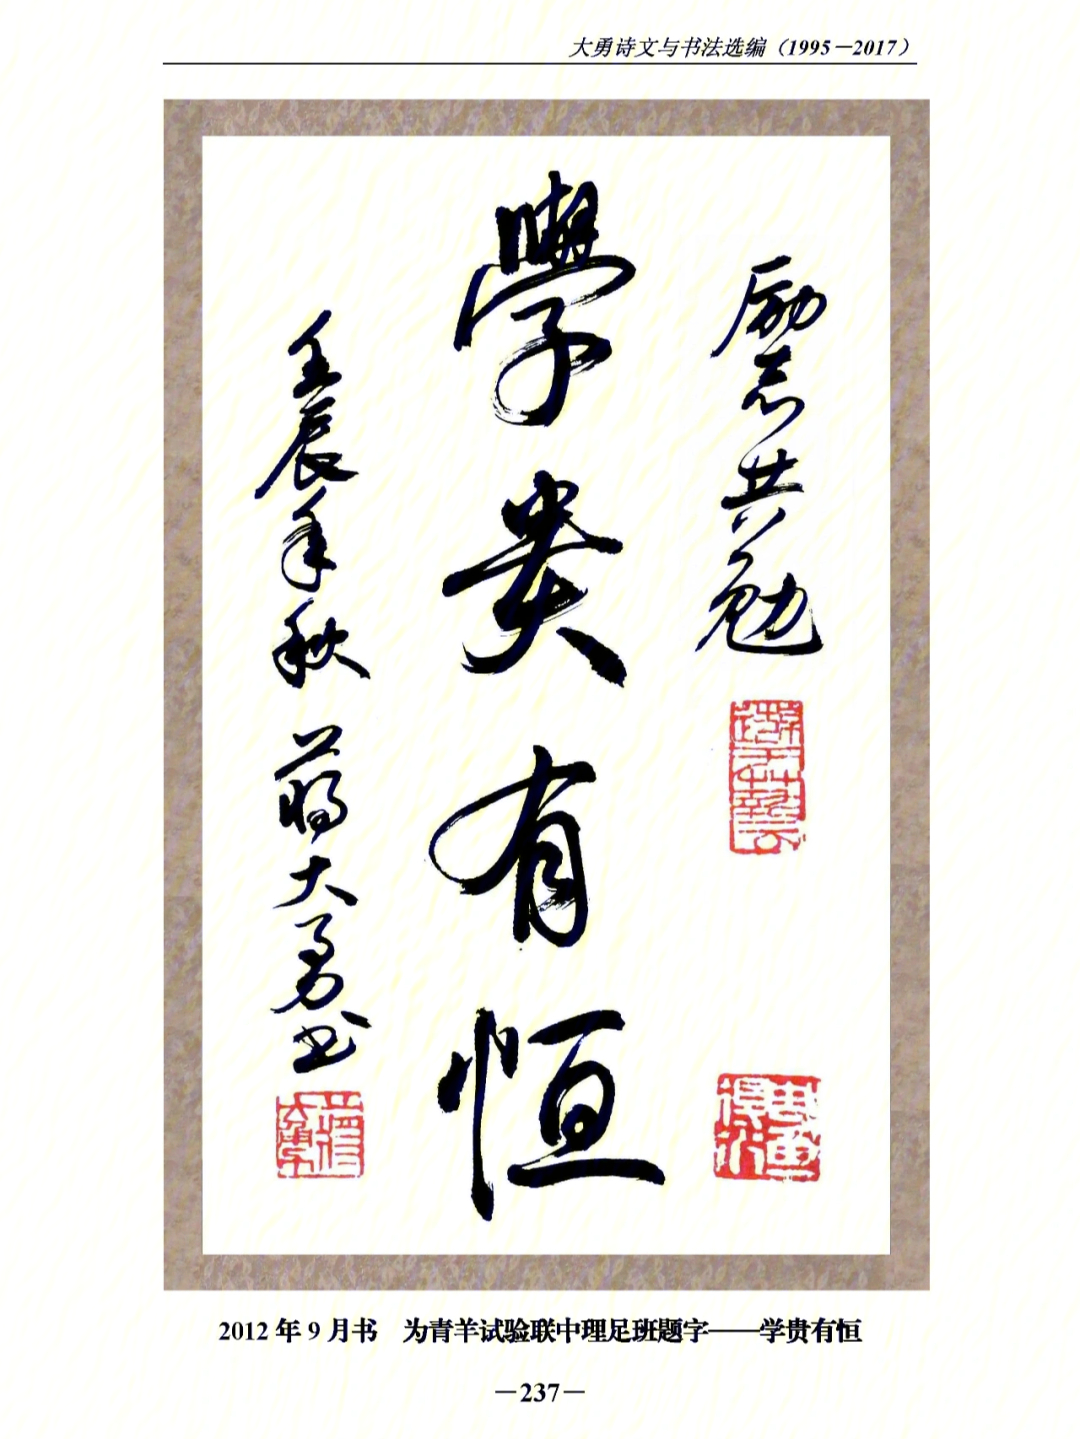 大勇诗文与书法选编（1995－2017）
励志共勉
學贵有恒
壬辰年秋 蒋大勇书
2012 年 9 月书　为青羊试验联中理足班题字——学贵有恒
－237－